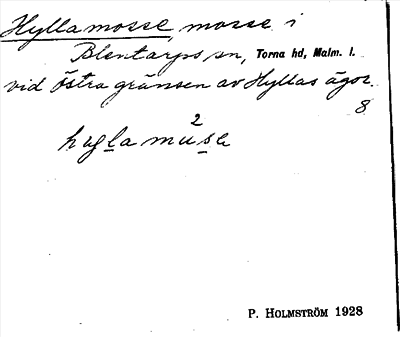 Hyllamosse, mosse i
Blentarps sn, Torna hd, Malm. l.
vid Östra gränsen av Hyllas ägor.
8
2
hyllamuse
P. HOLMSTRÖM 1928